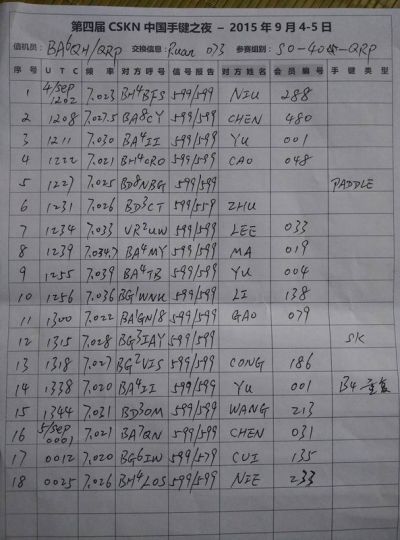 第四届 CSKN 中国手键之夜 – 2015 年 9 月 4-5 日
值机员: BA6QH/QRP 交换信息: Ruan 073 参赛组别: SO-40m-QRP
序号 UTC 频率 对方呼号 信号报告 对方姓名 会员编号 手键类型
1 4/Sep 1202 7.023 BH4BFS 599/599 NIU 288
2 1208 7.027.5 BA8CY 599/599 CHEN 480
3 1211 7.030 BA4II 599/599 YU 001
4 1222 7.021 BH4CRO 599/599 CAO 048
5 1227 7.025 BD8NBG 599/599 PADDLE
6 1231 7.026 BD3CT 599/559 ZHU
7 1234 7.033 VR2UW 599/599 LEE 033
8 1239 7.034.7 BA4MY 599/599 MA 019
9 1255 7.039 BA4TB 599/599 YU 004
10 1256 7.036 BG1WNK 599/599 LI 138
11 1300 7.022 BA1GN/8 599/599 GAO 079
12 1315 7.028 BG3IAY 599/599 SK
13 1318 7.027 BG2VIS 599/599 CONG 186
14 1338 7.020 BA4II 599/599 YU 001 B4 重复
15 1344 7.031 BD3OM 599/599 WANG 213
16 5/Sep 0001 7.021 BA7QN 599/599 CHEN 031
17 0012 7.020 BG6IW 599/579 CUI 135
18 0025 7.026 BH4LOS 599/599 NIE 233